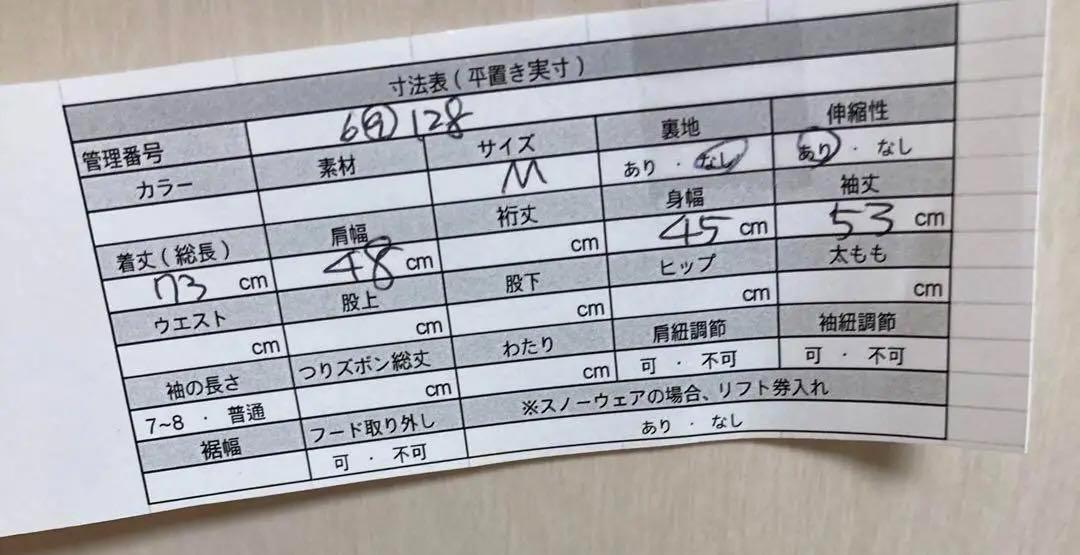 寸法表(平置き実寸)
管理番号 6⑨128
カラー 素材 サイズ 裏地 伸縮性
M あり・なし あり・なし
着丈(総長) 肩幅 裄丈 身幅 袖丈
73 cm 48 cm cm 45 cm 53 cm
ウエスト 股上 股下 ヒップ 太もも
cm cm cm cm cm
袖の長さ つりズボン総丈 わたり 肩紐調節 袖紐調節
7~8・普通 cm cm 可・不可 可・不可
裾幅 フード取り外し ※スノーウェアの場合、リフト券入れ
可・不可 あり・なし